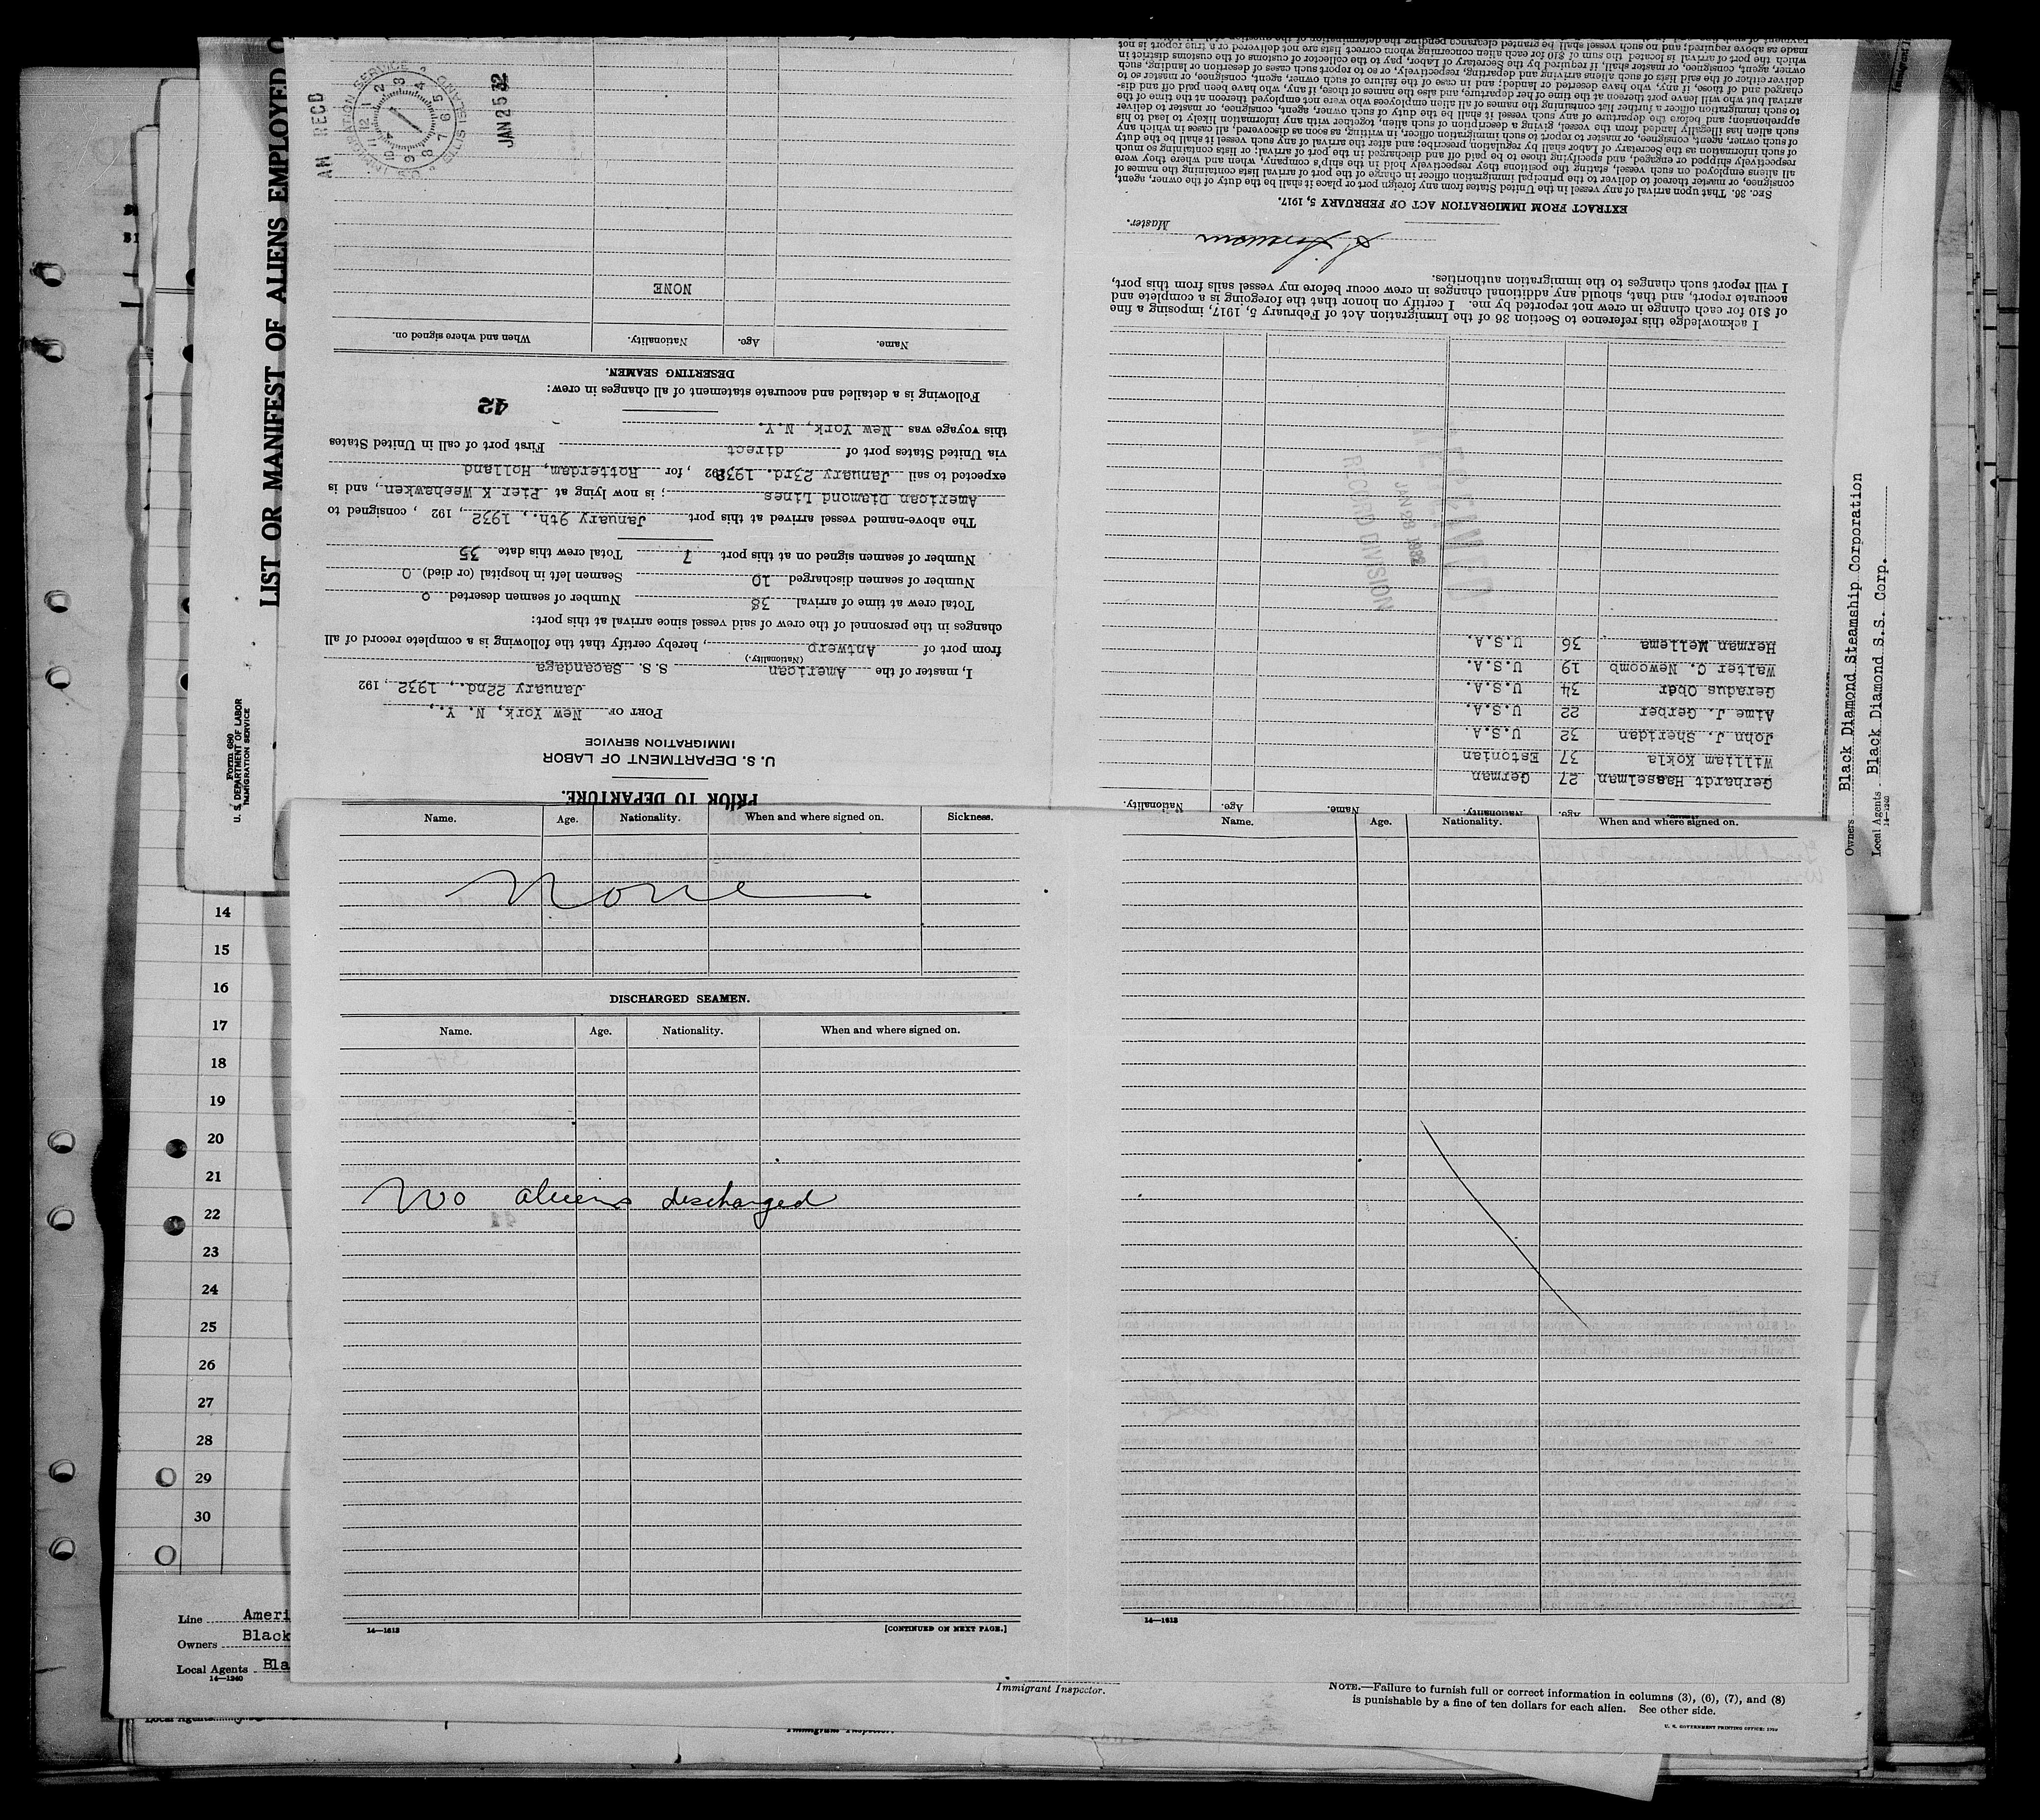 LIST OR MANIFEST OF ALIENS EMPLOYED
Form 680
U. S. DEPARTMENT OF LABOR
IMMIGRATION SERVICE
PRIOR TO DEPARTURE.
U. S. DEPARTMENT OF LABOR
IMMIGRATION SERVICE
PORT OF New York, N. Y.,
January 22nd., 1932, 192
I, master of the American S. S. Sacandaga
(Nationality.)
from port of Antwerp, hereby certify that the following is a complete record of all
changes in the personnel of the crew of said vessel since arrival at this port:
Total crew at time of arrival 38 Number of seamen deserted 0
Number of seamen discharged 10 Seamen left in hospital (or died) 0
Number of seamen signed on at this port 7 Total crew this date 35
The above-named vessel arrived at this port January 9th., 1932, 192 , consigned to
American Diamond Lines; is now lying at Pier K Weehawken, and is
expected to sail January 23rd. 1932 192 , for Rotterdam, Holland
via United States port of direct First port of call in United States
this voyage was New York, N.Y.
42
Following is a detailed and accurate statement of all changes in crew:
DESERTING SEAMEN.
Name. Age. Nationality. When and where signed on.
NONE
AM RECD
U.S. IMMIGRATION SERVICE
ELLIS ISLAND
JAN 25 32
Name. Age. Nationality.
Gerhardt Haaselman 27 German
William Kokla 37 Estonian
John J. Sheridan 32 U.S.A.
Aime J. Gerber 22 U.S.A.
Geradus Ober 34 U.S.A.
Walter C. Newcomb 19 U.S.A.
Herman Mellema 36 U.S.A.
RECEIVED
JAN 28 1932
RECORD DIVISION
I acknowledge this reference to Section 36 of the Immigration Act of February 5, 1917, imposing a fine
of $10 for each change in crew not reported by me. I certify on honor that the foregoing is a complete and
accurate report, and that, should any additional changes in crew occur before my vessel sails from this port,
I will report such changes to the immigration authorities.
Master.
EXTRACT FROM IMMIGRATION ACT OF FEBRUARY 5, 1917.
SEC. 36. That upon arrival of any vessel in the United States from any foreign port or place it shall be the duty of the owner, agent,
consignee, or master thereof to deliver to the principal immigration officer in charge of the port of arrival lists containing the names of
all aliens employed on such vessel, stating the positions they respectively hold in the ship's company, when and where they were
respectively shipped or engaged, and specifying those to be paid off and discharged in the port of arrival; or lists containing so much
of such information as the Secretary of Labor shall by regulation prescribe; and after the arrival of any such vessel it shall be the duty
of such owner, agent, consignee, or master to report to such immigration officer, in writing, as soon as discovered, all cases in which any
such alien has illegally landed from the vessel, giving a description of such alien, together with any information likely to lead to his
apprehension; and before the departure of any such vessel it shall be the duty of such owner, agent, consignee, or master to deliver
to such immigration officer a further list containing the names of all alien employees who were not employed thereon at the time of the
arrival but who will leave port thereon at the time of her departure, and also the names of those, if any, who have been paid off and dis-
charged and of those, if any, who have deserted or landed; and in case of the failure of such owner, agent, consignee, or master so to
deliver either of the said lists of such aliens arriving and departing, respectively, or so to report such cases of desertion or landing, such
owner, agent, consignee, or master shall, if required by the Secretary of Labor, pay to the collector of customs of the customs district in
which the port of arrival is located the sum of $10 for each alien concerning whom correct lists are not delivered or a true report is not
made as above required; and no such vessel shall be granted clearance pending the determination of the question
Owners Black Diamond Steamship Corporation
Local Agents Black Diamond S.S. Corp.
14—1240
Name. Age. Nationality. When and where signed on. Sickness.
None
DISCHARGED SEAMEN.
Name. Age. Nationality. When and where signed on.
No aliens discharged
14—1613 [CONTINUED ON NEXT PAGE.]
Name. Age. Nationality. When and where signed on.
14—1613
14
15
16
17
18
19
20
21
22
23
24
25
26
27
28
29
30
Line Ameri
Owners Black
Local Agents Bla
14—1240
Immigrant Inspector.
NOTE.—Failure to furnish full or correct information in columns (3), (6), (7), and (8)
is punishable by a fine of ten dollars for each alien. See other side.
U. S. GOVERNMENT PRINTING OFFICE:
Local Agents
Immigrant Inspector.